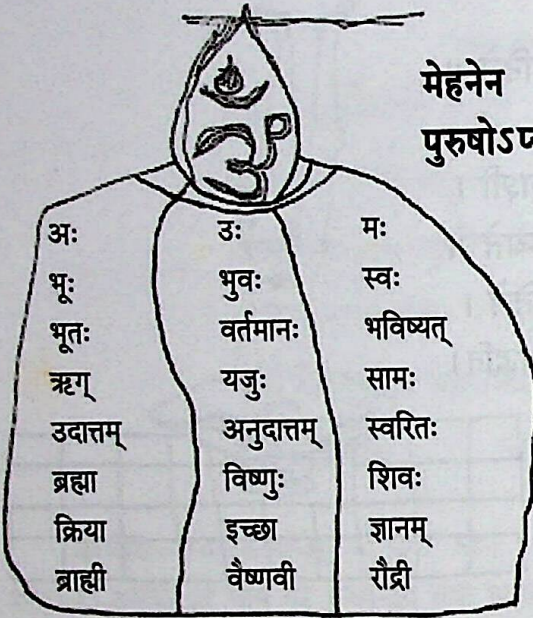 मेहनेन
ॐ
अः उः मः
भूः भुवः स्वः
भूतः वर्तमानः भविष्यत्
ऋग् यजुः सामः
उदात्तम् अनुदात्तम् स्वरितः
ब्रह्मा विष्णुः शिवः
क्रिया इच्छा ज्ञानम्
ब्राह्मी वैष्णवी रौद्री